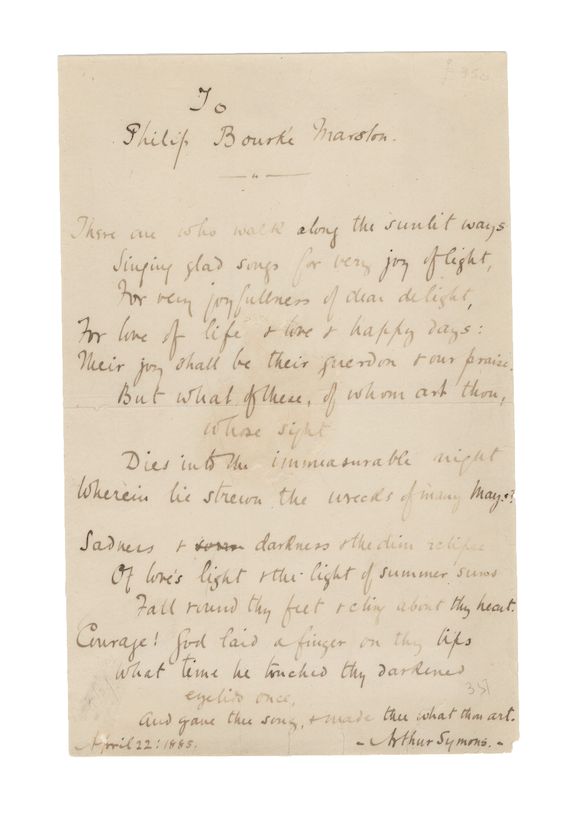 To
Philip Bourke Marston.
There are who walk along the sunlit ways
Singing glad songs for very joy of light,
For very joyfullness of dear delight,
For love of life & love & happy days:
Their joy shall be their guerdon & our praise.
But what of these, of whom art thou,
whose sight
Dies into the immeasurable night
Wherein lie strewn the wrecks of many Mays?
Sadness & darkness & the dim eclipse
Of love's light & the light of summer suns
Fall round thy feet & cling about thy heart.
Courage! God laid a finger on thy lips
What time he touched thy darkened
eyelids once,
And gave thee song, & made thee what thou art.
April 22: 1885.
- Arthur Symons. -